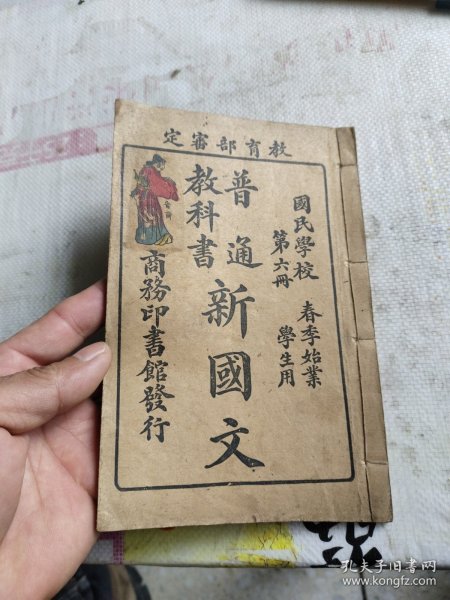 教育部審定
國民學校 春季始業
第六冊 學生用
普通
教科書
新國文
商務印書館發行
孔夫子旧书网
www.kongfz.com